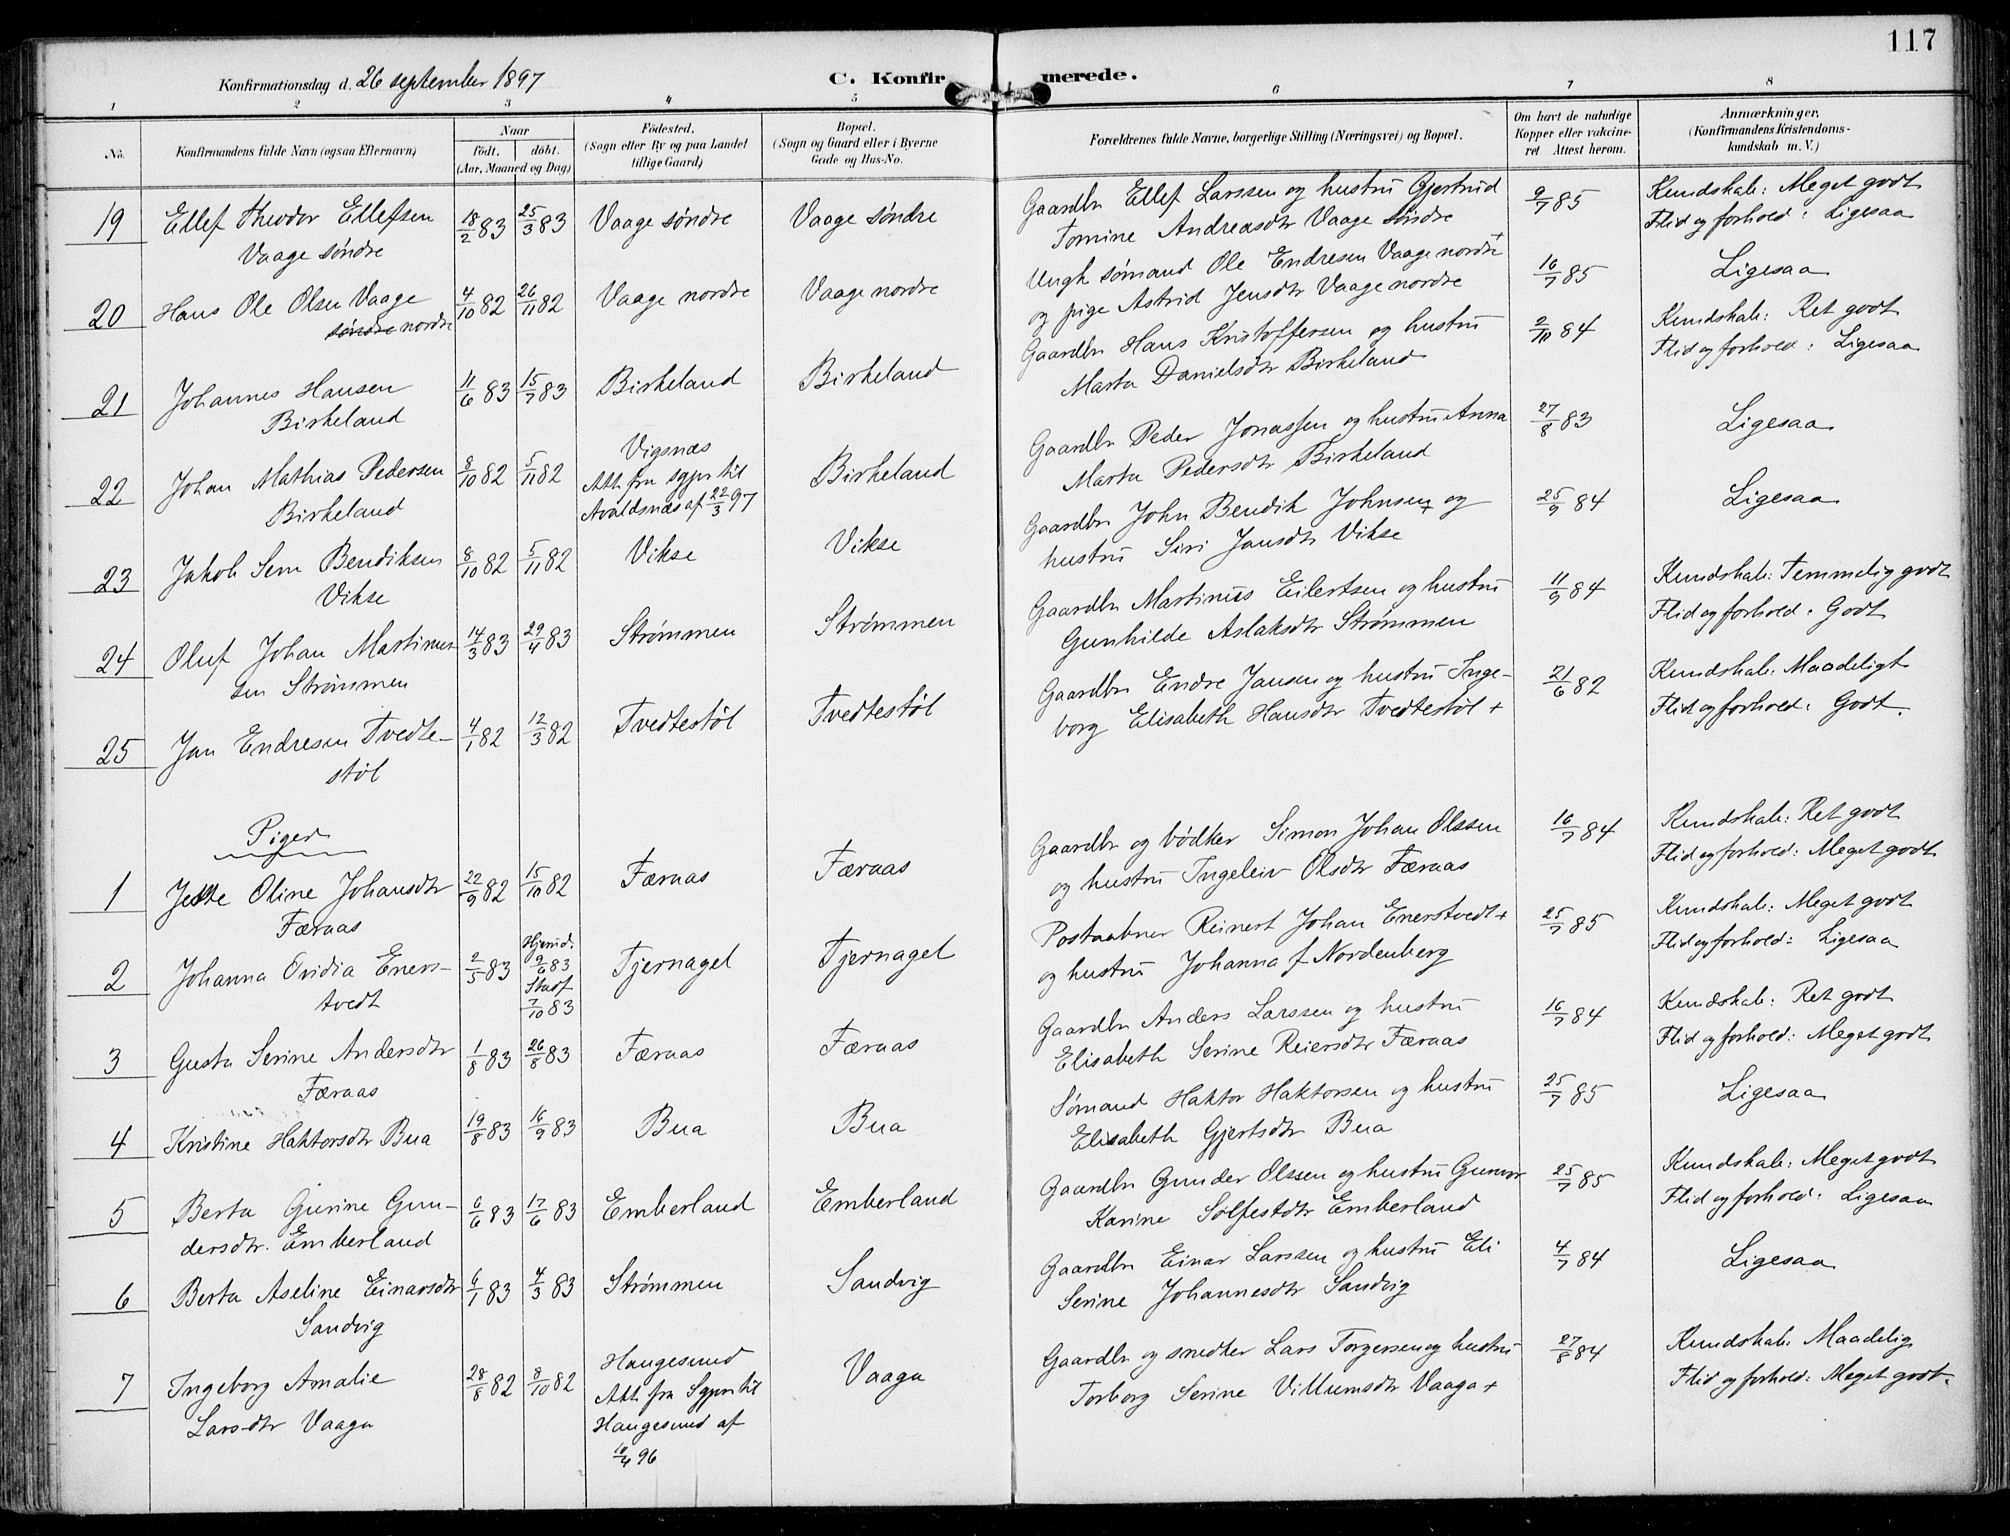 117
Konfirmationsdag d. 26 september 1897
C. Konfirmerede.
1 2 3 4 5 6 7 8
No.
Konfirmandens fulde Navn (ogsaa Efternavn)
Naar
födt. döbt.
(Aar, Maaned og Dag)
Födested.
(Sogn eller By og paa Landet
tillige Gaard)
Bopæl.
(Sogn og Gaard eller i Byerne
Gade og Hus-No.
Forældrenes fulde Navne, borgerlige Stilling (Næringsvei) og Bopæl.
Om havt de naturlige
Kopper eller vakcine-
ret Attest herom.
Anmærkninger.
(Konfirmandens Kristendoms-
kundskab m. V.)
19 Ellef Theodor Ellefsen 18/2 83 25/3 83 Vaage søndre Vaage søndre Gaardbr Ellef Larssen og hustru Gjertrud 9/7 85 Kundskab: Meget godt
Vaage søndre Tomine Andreasdtr Vaage søndre Flid og forhold: Ligesaa
20 Hans Ole Olsen Vaage 4/10 82 26/11 82 Vaage nordre Vaage nordre Ungk sømand Ole Endresen Vaage nordre + 16/7 85 Ligesaa
søndre nordre og pige Astrid Jensdtr Vaage nordre
21 Johannes Hansen 11/6 83 15/7 83 Birkeland Birkeland Gaardbr Hans Kristoffersen og hustru 2/10 84 Kundskab: Ret godt
Birkeland Marta Danielsdtr Birkeland Flid og forhold: Ligesaa
22 Johan Mathias Pedersen 8/10 82 5/11 82 Vigsnæs Birkeland Gaardbr Peder Jonassen og hustru Anna 27/8 83 Ligesaa
Birkeland Att. fra sgpr til Marta Pedersdtr Birkeland
Avaldsnæs af 22/3 97
23 Jakob Sem Bendiksen 8/10 82 5/11 82 Vikse Vikse Gaardbr John Bendik Johnsen + og 25/9 84 Ligesaa
Vikse hustru Siri Jansdtr Vikse
24 Oluf Johan Martinus- 14/3 83 29/4 83 Strømmen Strømmen Gaardbr Martinus Eilertsen og hustru 11/9 84 Kundskab: Temmelig godt
sen Strømmen Gunhilde Aslaksdtr Strømmen Flid og forhold: Godt
25 Jan Endresen Tvedte- 4/1 82 12/3 82 Tvedtestöl Tvedtestöl Gaardbr Endre Jansen og hustru Inge- 21/6 82 Kundskab: Maadeligt
stöl borg Elisabeth Hansdtr Tvedtestöl + Flid og forhold: Godt.
Piger
1 Jette Oline Johansdtr 22/9 82 15/10 82 Færaas Færaas Gaardbr og bödker Simon Johan Olssen 16/7 84 Kundskab: Ret godt
Færaas og hustru Ingeleiv Olsdtr Færaas Flid og forhold: Meget godt
2 Johanna Ovidia Eners- 2/5 83 Hjemd. 9/6 83 Tjernagel Tjernagel Postaabner Reinert Johan Enerstvedt + 25/7 85 Kundskab: Meget godt
tvedt Stadf 7/10 83 og hustru Johanna f Nordenberg Flid og forhold: Ligesaa
3 Gusta Serine Andersdtr 1/8 83 26/8 83 Færaas Færaas Gaardbr Anders Larssen og hustru 16/7 84 Kundskab: Ret godt
Færaas Elisabeth Serine Reiersdtr Færaas Flid og forhold: Meget godt
4 Kristine Haktorsdtr Bua 19/8 83 16/9 83 Bua Bua Sømand Haktor Haktorsen og hustru 25/7 85 Ligesaa
Elisabeth Gjertsdtr Bua
5 Berta Gurine Gun- 6/6 83 17/6 83 Emberland Emberland Gaardbr Gunder Olssen og hustru Gunvor 25/7 85 Kundskab: Meget godt
dersdtr. Emberland Karine Solfestdtr Emberland Flid og forhold: Ligesaa
6 Berta Aseline Einarsdtr 6/1 83 4/3 83 Strømmen Sandvig Gaardbr Einar Larssen og hustru Eli 4/7 84 Ligesaa
Sandvig Serine Johannesdtr Sandvig
7 Ingeborg Amalie 28/8 82 8/10 82 Haugesund Vaaga Gaardbr og snedker Lars Torgersen og hustru 27/8 84 Kundskab: Maadelig
Larsdtr Vaaga Att. fra Sgpr til Torborg Serine Villumsdtr Vaaga + Flid og forhold: Meget godt.
Haugesund af
10/4 96